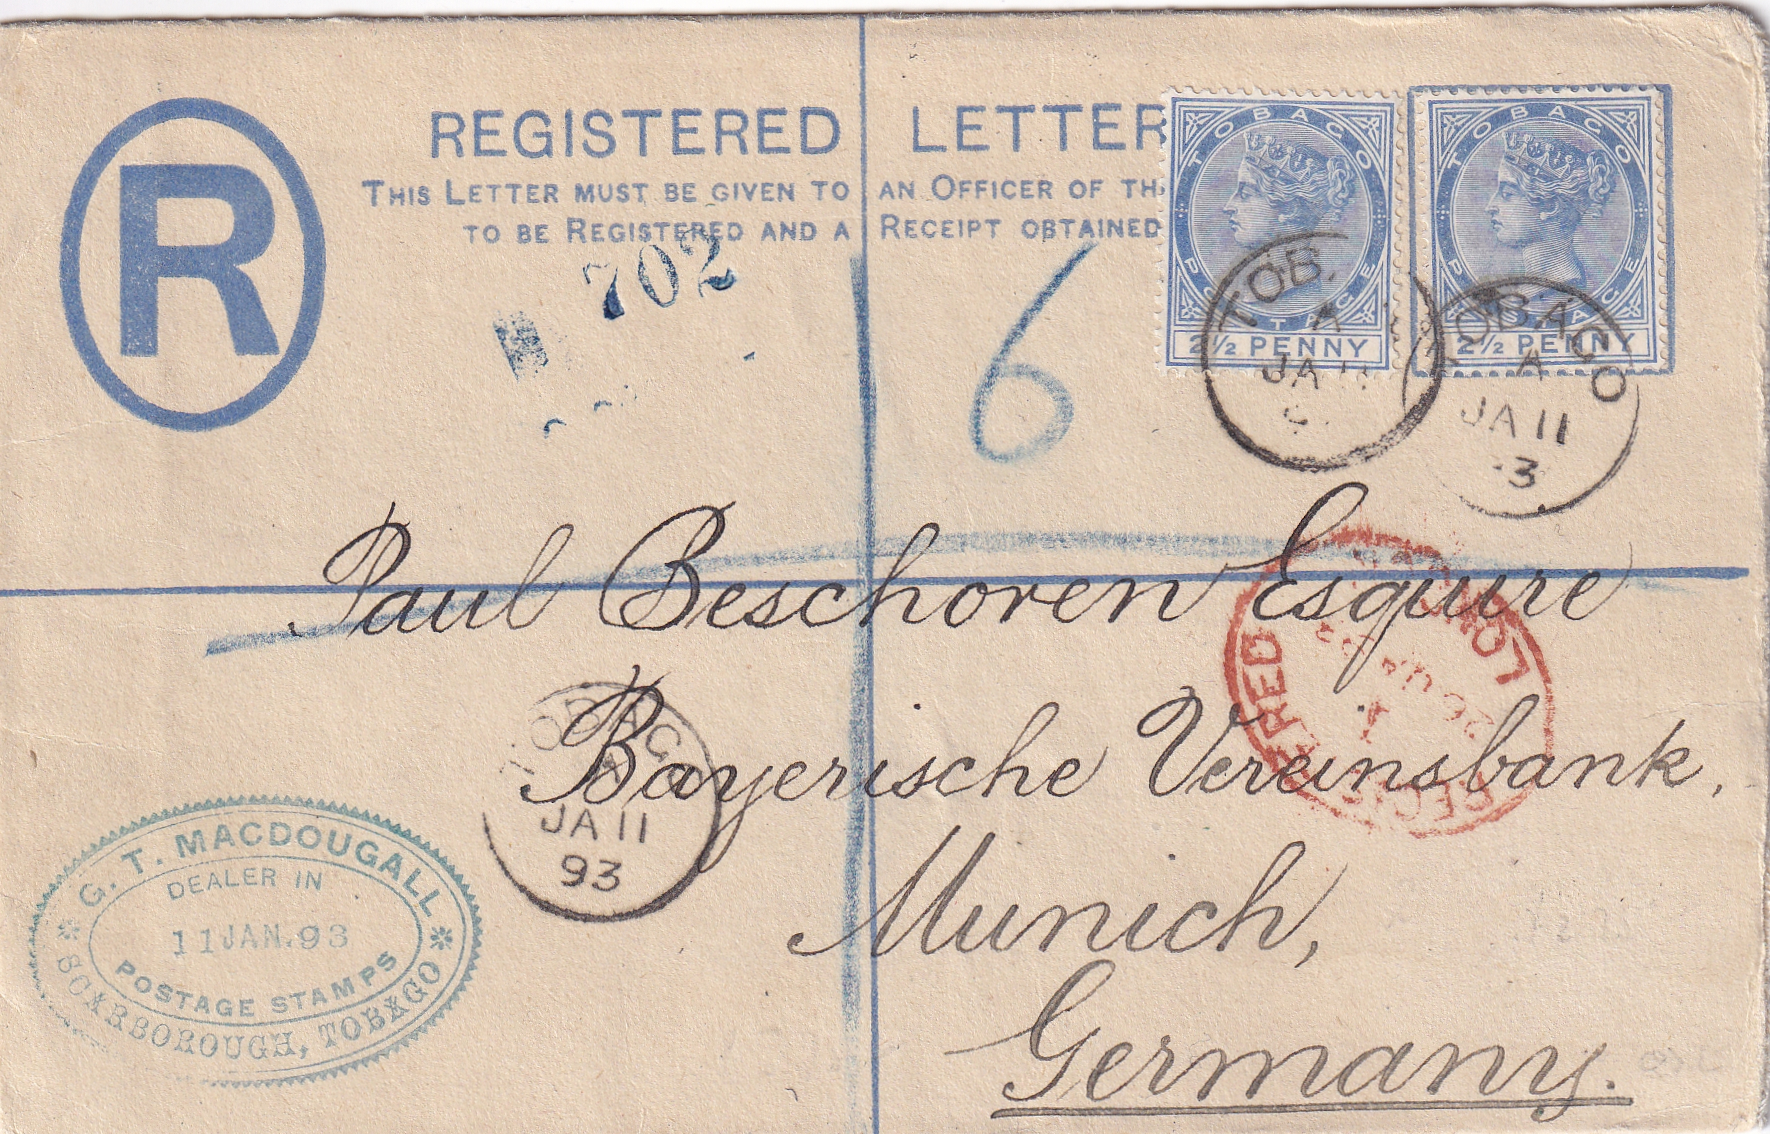 R
REGISTERED LETTER
THIS LETTER MUST BE GIVEN TO AN OFFICER OF TH
TO BE REGISTERED AND A RECEIPT OBTAINED
TOBAGO POSTAGE
2½ PENNY
TOBAGO POSTAGE
2½ PENNY
702
6
TOB
A
JA 11
TOBAGO
A
JA 11
3
Paul Beschoren Esquire
Bayerische Vereinsbank.
Munich,
Germany.
TOBAGO
A
JA 11
93
LONDON
REGISTERED
G. T. MACDOUGALL
DEALER IN
11 JAN. 93
POSTAGE STAMPS
SCARBOROUGH, TOBAGO